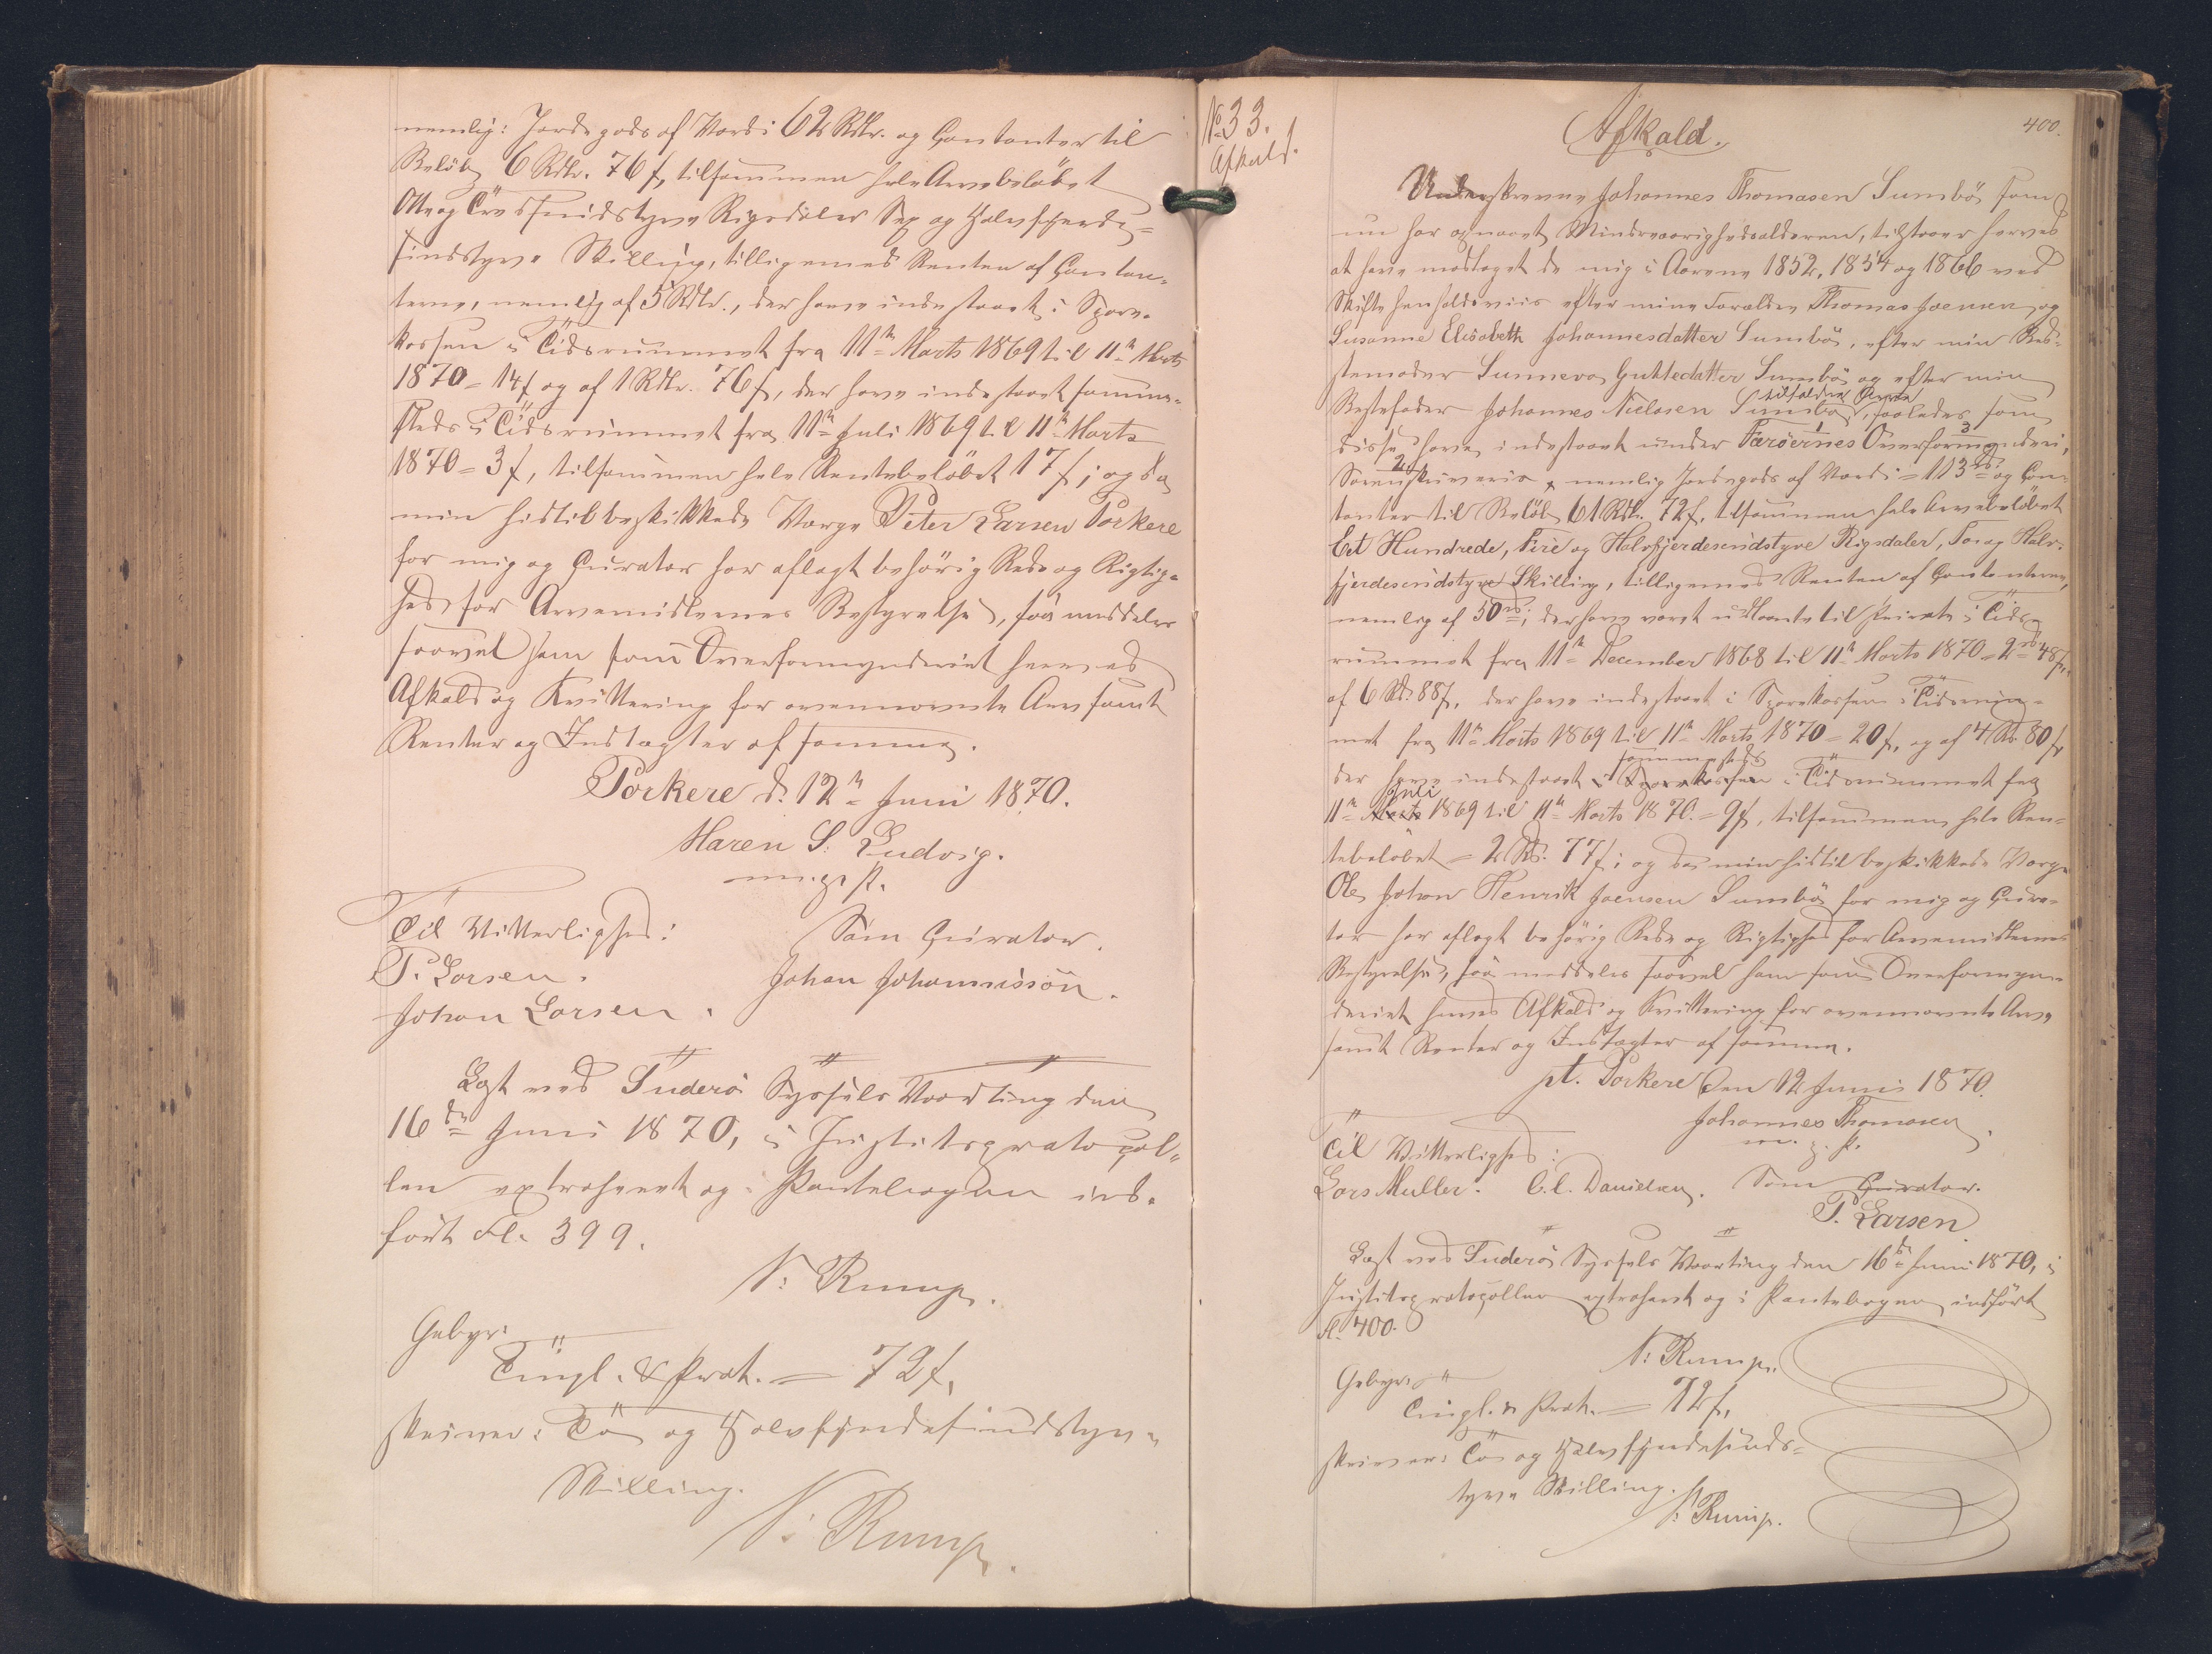 nemlig: Jordegods af Værdi 62 Rdlr. og Contanter til
Beløb 6 Rdlr. 76 f, tilsammen hele Arvebeløbet
Otte og Tredsindstyve Rigsdaler Sex og Halvfjerds=
sindstyve Skilling, tilligemed Renten af Contan=
terne, nemlig af 5 Rdlr., der have indestaaet i Spare=
kassen i Tidsrummet fra 11te Marts 1869 til 11te Marts
1870 = 14 f og af 1 Rdlr. 76 f, der have indestaaet samme=
steds i Tidsrummet fra 11te Juli 1869 til 11te Marts
1870 = 3 f, tilsammen hele Rentebeløbet 17 f; og da
min hidtil beskikkede Værge Peter Larsen Porkere
for mig og Curator har aflagt behørig Rede og Rigtig=
hed for Arvemidlernes Bestyrelse, saa meddeles
saavel ham som Overformynderiet herved
Afkald og Kvittering for ovennævnte Arv samt
Renter og Indtægter af samme.
Porkere d. 12te Juni 1870.
Maren S. Ludvig.
m. p. P.
Til Vitterlighed:
Som Curator.
P. Larsen.
Johan Johannissøn.
Johan Larsen.
Læst ved Suderø Syssels Vaarting den
16de Juni 1870, i Justitsprotocol=
len extraheret og i Pantebogen ind=
ført Fl. 399.
N: Rump.
Gebyr:
Tingl. & Prot. = 72 f,
skriver: To og Halvfjerdesindstyve
Skilling.
N: Rump.
No 33.
Afkald.
400.
Afkald.
Underskrevne Johannes Thomasen Sumbø som
nu har opnaaet Mindreaarighedsalderen, tilstaaer herved
at have modtaget de mig i Aarene 1852, 1854 og 1866 ved
Skifte henholdsviis efter mine Forældre Thomas Joensen og
Susanne Elisabeth Johannesdatter Sumbø, efter min Bed=
stemoder Sunneva Guttedatter Sumbø og efter min
Bestefader Johannes Nielsen Sumbø tilfaldne Arve, saaledes som
disse have indestaaet under Færøernes Overformynderi,
Sorenskriveri nemlig Jordegods af Værdi = 113 rd. og Con=
tanter til Beløb 61 Rdlr. 72 f. tilsammen hele Arvebeløbet
Et Hundrede, Fire og Halvfjerdesindstyve Rigsdaler, To og Halv=
fjerdesindstyve Skilling, tilligemed Renten af Contanterne,
nemlig af 50 rd., der have været udlaante til Private i Tids=
rummet fra 11te December 1868 til 11te Marts 1870 = 2 rd 48 f,
af 6 Rd. 88 f, der have indestaaet i Sparekassen i Tidsrum=
met fra 11te Marts 1869 til 11te Marts 1870 = 20 f, og af 4 Rd. 80 f,
der have indestaaet sammesteds i Tidsrummet fra
11te Juli 1869 til 11te Marts 1870 = 9 f, tilsammen hele Ren=
tebeløbet = 2 Rd. 77 f; og da min hidtil beskikkede Værge
Ole Johan Henrik Joensen Sumbø for mig og Cura=
tor har aflagt behørig Rede og Rigtighed for Arvemidlernes
Bestyrelse, saa meddeles saavel ham som Overformyn=
deriet herved Afkald og Kvittering for ovennævnte Arv
samt Renter og Indtægter af samme.
pt. Porkere den 12 Juni 1870.
Johannes Thomasen
m. p. P.
Til Vitterlighed:
Lars Müller. C. C. Danielsen.
Som Curator.
P. Larsen
Læst ved Suderø Syssels Vaarting den 16de Juni 1870, i
Justitsprotocollen extraheret og i Pantebogen indført
Fl. 400.
N: Rump.
Gebyr:
Tingl. & Prot. = 72 f,
skriver: To og Halvfjerdesinds=
tyve Skilling.
N: Rump.